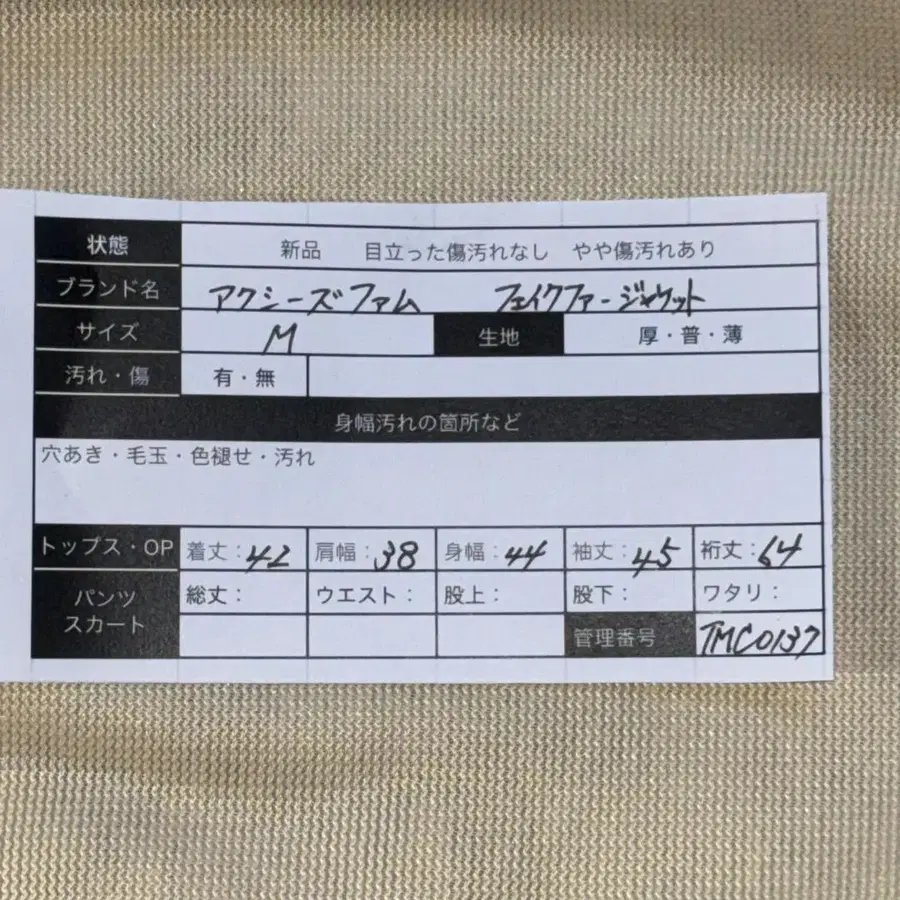 状態 新品 目立った傷汚れなし やや傷汚れあり
ブランド名 アクシーズファム フェイクファージャケット
サイズ M 生地 厚・普・薄
汚れ・傷 有・無
身幅汚れの箇所など
穴あき・毛玉・色褪せ・汚れ
トップス・OP 着丈：42 肩幅：38 身幅：44 袖丈：45 裄丈：64
パンツ スカート 総丈： ウエスト： 股上： 股下： ワタリ：
管理番号 TMC0137